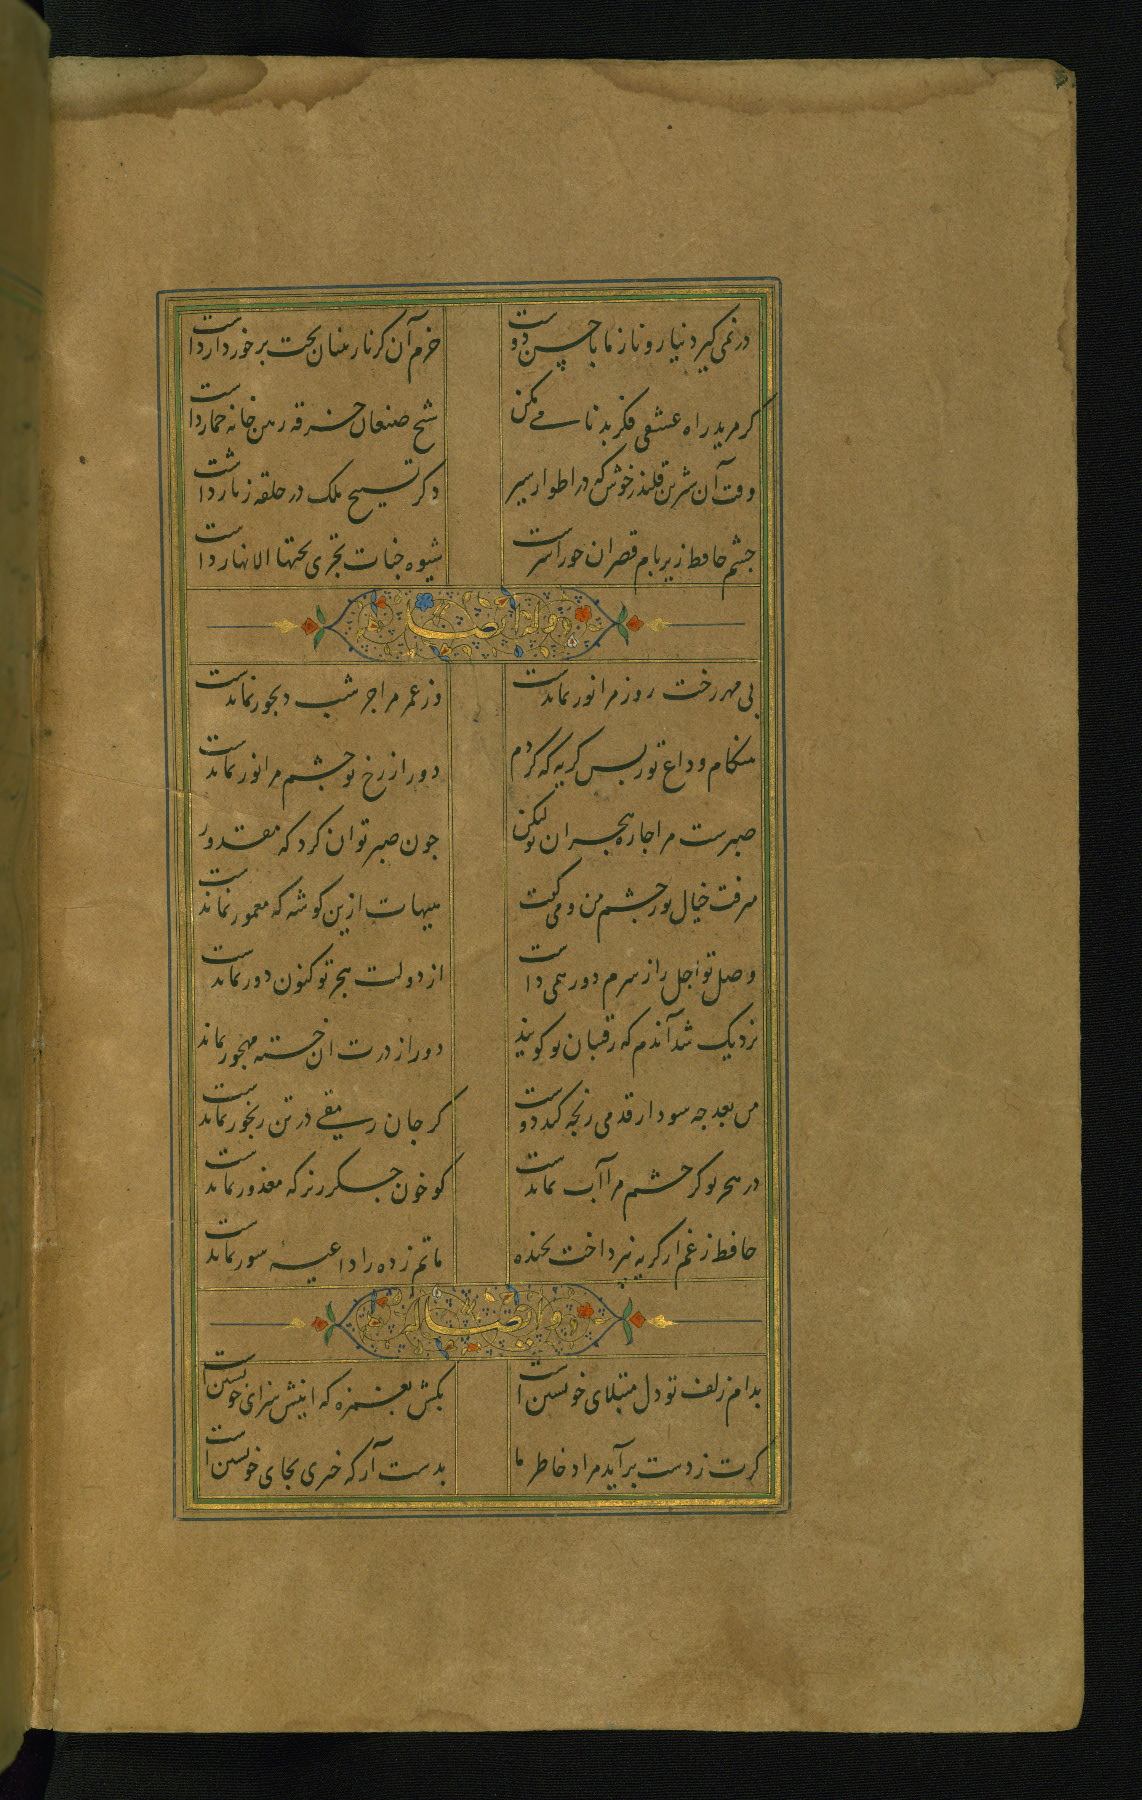 در نمی‌گیرد نیاز و ناز ما با حسن دوست خرم آن کز نازنینان بخت برخوردار داشت
گر مرید راه عشقی فکر بدنامی مکن شیخ صنعان خرقه رهن خانه خمار داشت
وقت آن شیرین قلندر خوش که در اطوار سیر ذکر تسبیح ملک در حلقه زنار داشت
چشم حافظ زیر بام قصر آن حورا سرشت شیوه جنات تجری تحتها الانهار داشت
و له ایضا
بی مهر رخت روز مرا نور نماندست وز عمر مرا جز شب دیجور نماندست
هنگام وداع تو ز بس گریه که کردم دور از رخ تو چشم مرا نور نماندست
صبرست مرا چاره هجران تو لیکن چون صبر توان کرد که مقدور
میرفت خیال تو ز چشم من و می گفت هیهات ازین گوشه که معمور نماندست
وصل تو اجل را ز سرم دور همی داشت از دولت هجر تو کنون دور نماندست
نزدیک شد آندم که رقیبان تو گویند دور از درت آن خسته مهجور نماند
من بعد چه سود ار قدمی رنجه کند دوست کز جان رمقی در تن رنجور نماندست
در هجر تو گر چشم مرا آب نماندست گو خون جگر ریز که معذور نماندست
حافظ ز غم از گریه نپرداخت بخنده ماتم زده را داعیه سور نماندست
و له ایضا
بدام زلف تو دل مبتلای خویشتن است بکش بغمزه که اینش سزای خویشتن است
گرت ز دست برآید مراد خاطر ما بدست آر که خیری بجای خویشتن است